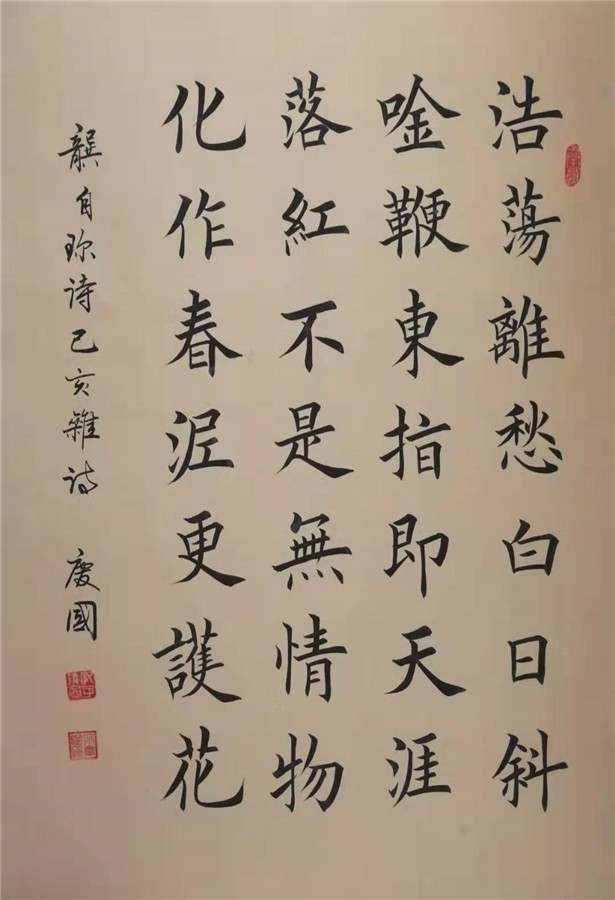 浩蕩離愁白日斜
唫鞭東指即天涯
落紅不是無情物
化作春泥更護花
龔自珍诗己亥雜诗 慶國